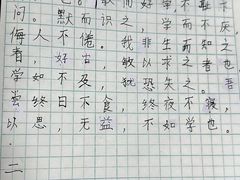 问。默而识之,学而不厌,
诲人不倦。我非生而知之
者,好古,敏以求之者也
学如不及,犹恐失之。吾
尝终日不食,终夜不寝,
以思,无益,不如学也。
二